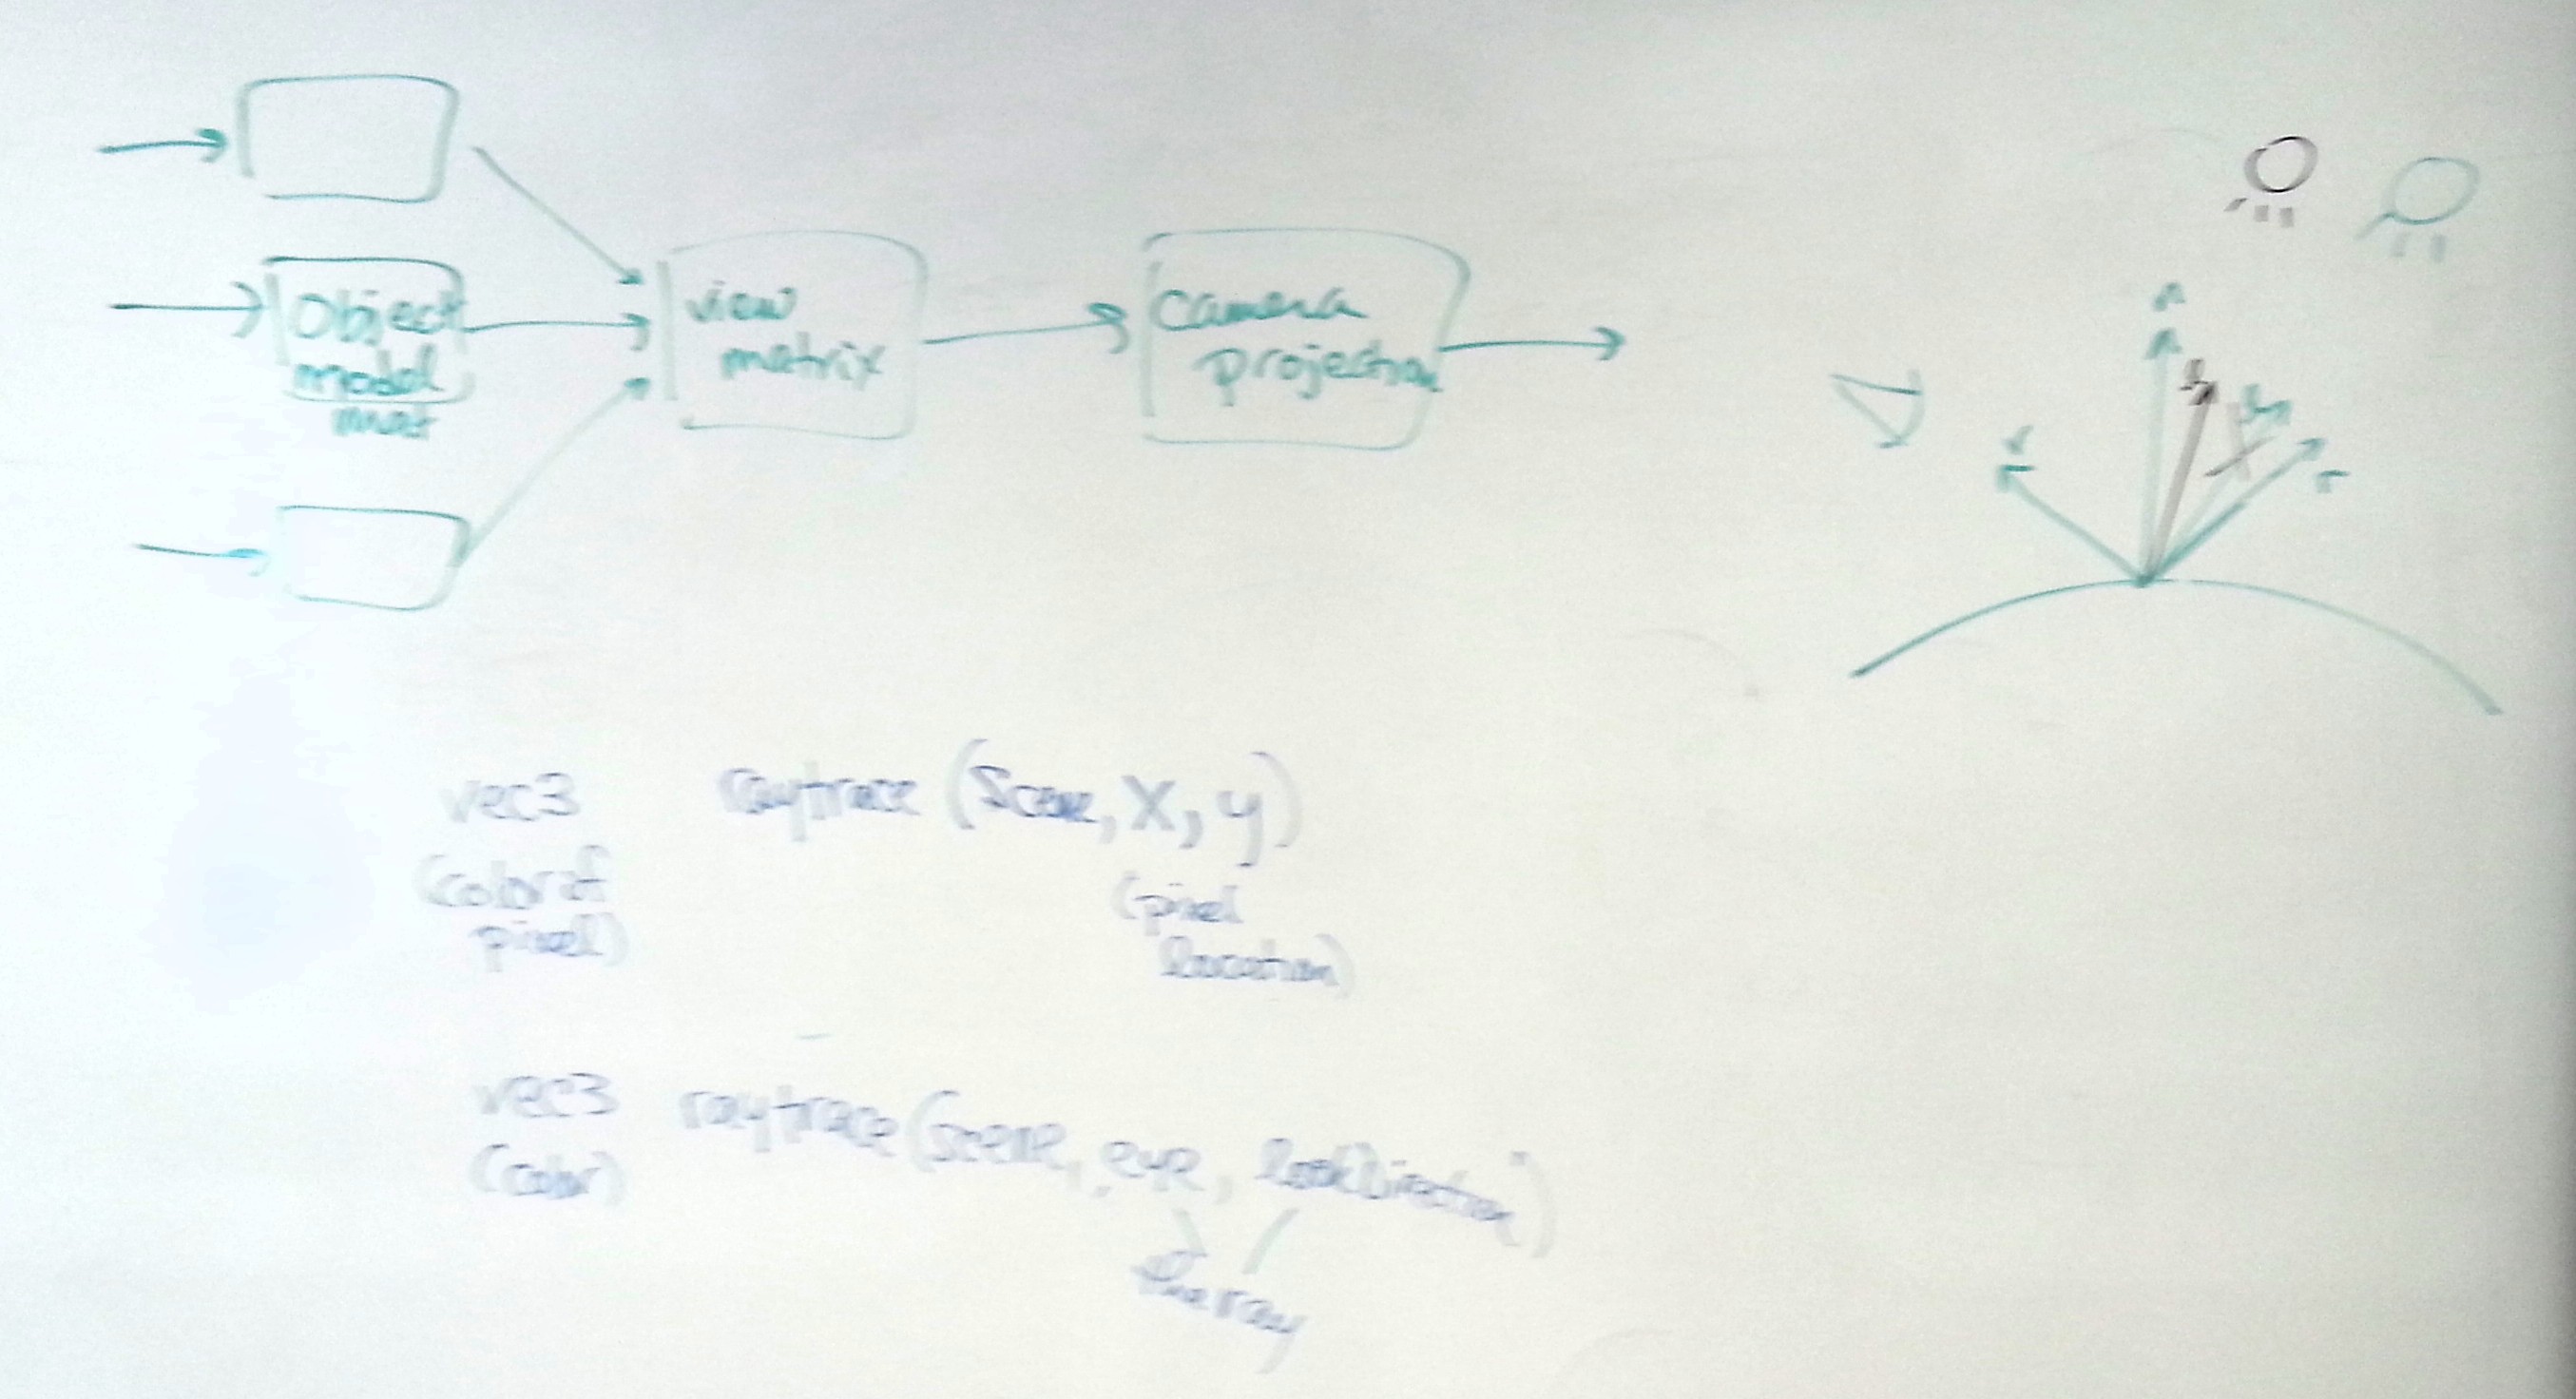 Object
model
mat
view
matrix
camera
projection
n
v
r
vec3 raytrace (Scene, X, y)
(color of
pixel)
(pixel
location)
vec3 raytrace (scene, eye, lookDirection)
(color)
the ray